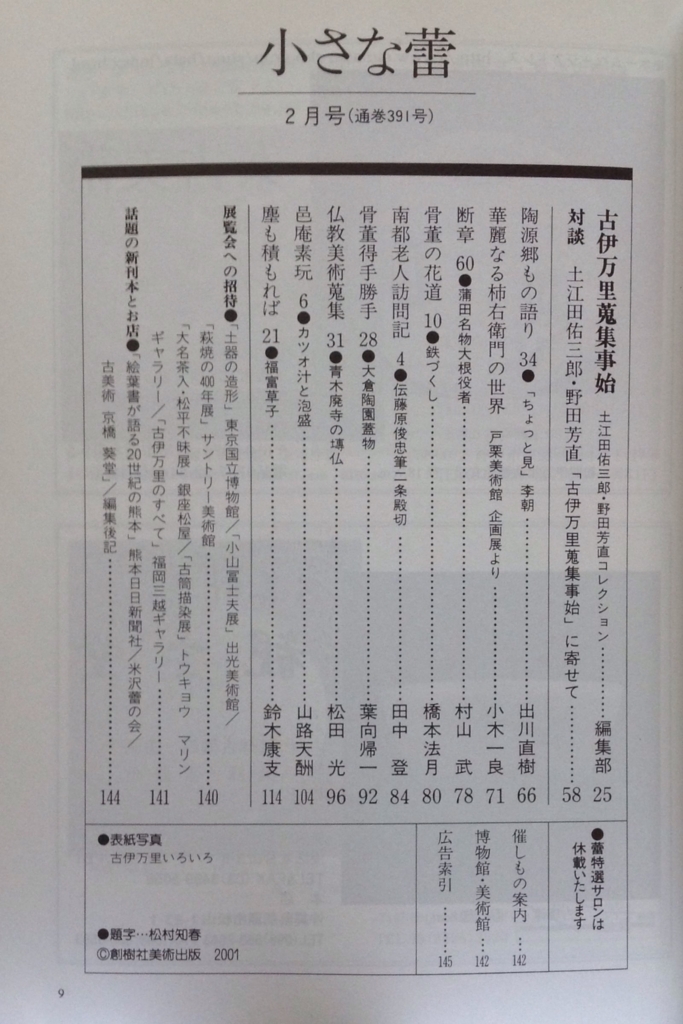 小さな蕾
2月号(通巻391号)
古伊万里蒐集事始 土江田佑三郎・野田芳直コレクション…………編集部 25
対談 土江田佑三郎・野田芳直「古伊万里蒐集事始」に寄せて…………58
陶源郷もの語り 34●「ちょっと見」李朝…………出川直樹 66
華麗なる柿右衛門の世界 戸栗美術館 企画展より…………小木一良 71
断章 60●蒲田名物大根役者…………村山 武 78
骨董の花道 10●鉄づくし…………橋本法月 80
南都老人訪問記 4●伝藤原俊忠筆二条殿切…………田中 登 84
骨董得手勝手 28●大倉陶園蓋物…………葉向帰一 92
仏教美術蒐集 31●青木廃寺の塼仏…………松田 光 96
邑庵素玩 6●カツオ汁と泡盛…………山路天酬 104
塵も積もれば 21●福富草子…………鈴木康支 114
展覧会への招待●「土器の造形」東京国立博物館/「小山冨士夫展」出光美術館/
「萩焼の400年展」サントリー美術館…………140
「大名茶入・松平不昧展」銀座松屋/「古筒描染展」トウキョウ マリン
ギャラリー/「古伊万里のすべて」福岡三越ギャラリー…………141
話題の新刊本とお店●「絵葉書が語る20世紀の熊本」熊本日日新聞社/米沢蕾の会/
古美術 京橋 葵堂」/編集後記…………144
●蕾特選サロンは
休載いたします
催しもの案内…142
博物館・美術館…142
広告索引…………145
●表紙写真
古伊万里いろいろ
●題字…松村知春
©創樹社美術出版 2001
9